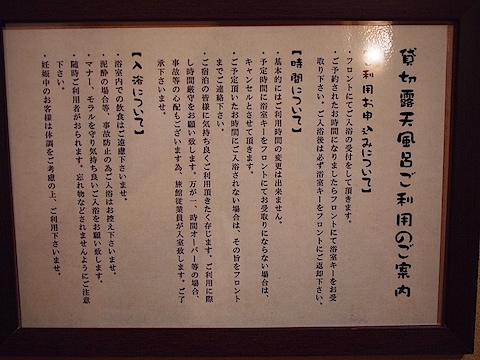 貸切露天風呂ご利用のご案内
【ご利用お申込みについて】
・フロントにてご入浴の受付をして頂きます。
・ご予約されたお時間になりましたらフロントにて浴室キーをお受
取り下さい。ご入浴後は必ず浴室キーをフロントにご返却下さい。
【時間について】
・基本的にはご利用時間の変更は出来ません。
・予定時間に浴室キーをフロントにてお受取りにならない場合は、
キャンセルとさせて頂きます。
・ご予定頂いたお時間にご入浴されない場合は、その旨をフロント
までご連絡下さい。
・ご宿泊の皆様に気持ち良くご利用頂きたく存じます。ご利用に際
し時間厳守をお願い致します。万が一、時間オーバー等の場合、
事故等の心配もございます為、旅館従業員が入室致します。ご了
承下さいませ。
【入浴について】
・浴室内での飲食はご遠慮下さいませ。
・泥酔の場合等、事故防止の為ご入浴はお控え下さいませ。
・マナー、モラルを守り気持ち良いご入浴をお願い致します。
・随時ご利用者がおられます。忘れ物などされませんようにご注意
下さい。
・妊娠中のお客様は体調をご考慮の上、ご利用下さいませ。